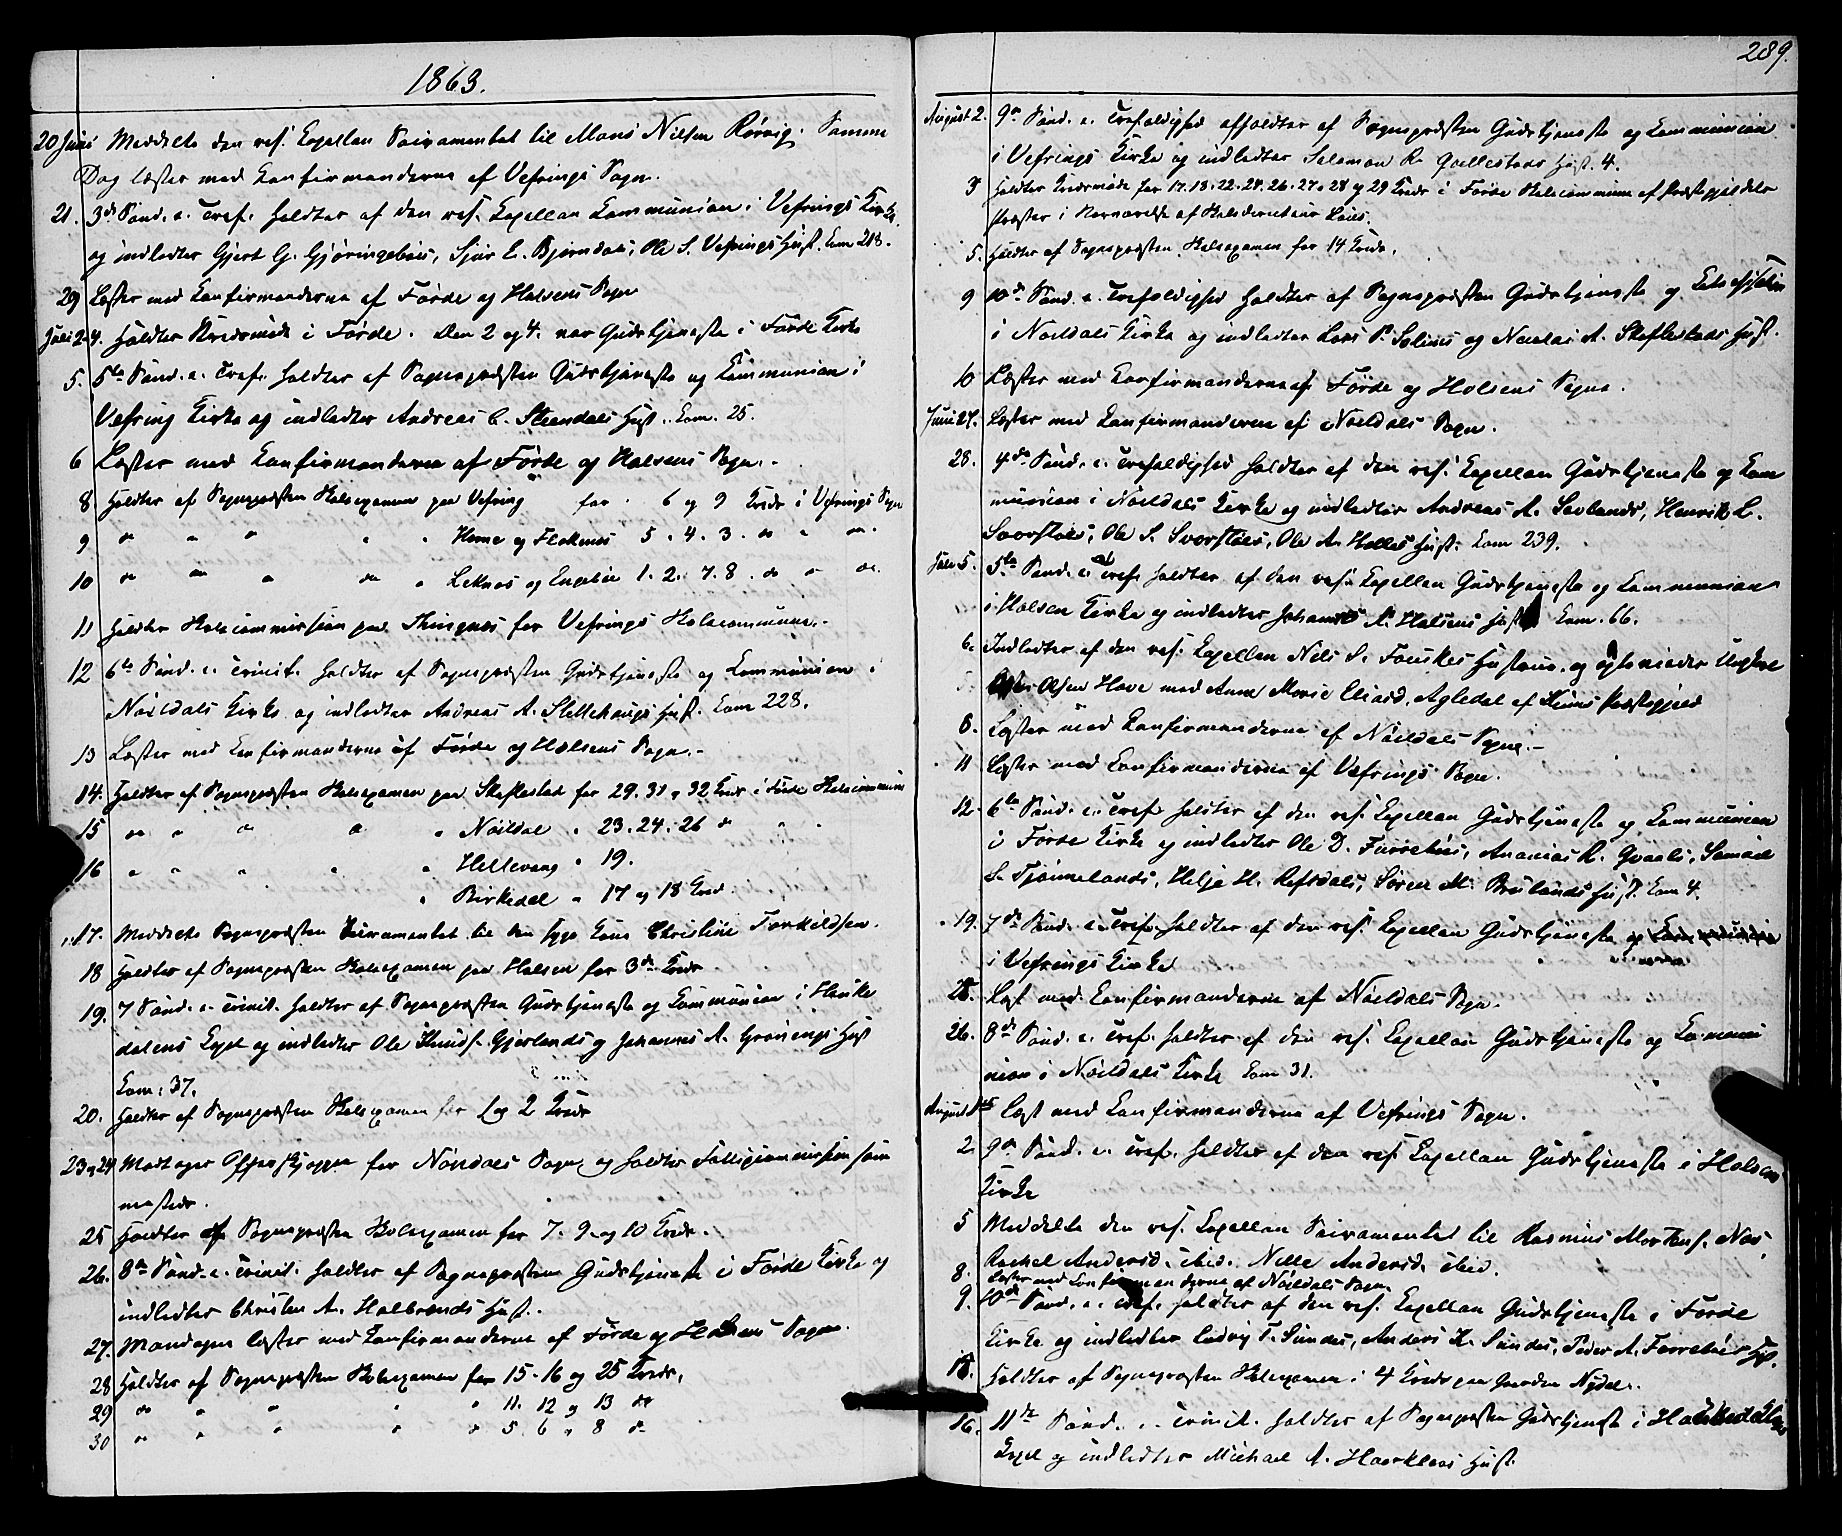 1863.
20 Juni Meddelte den res. Capellan Sacramentet til Mons Nilsen Rørvig. Samme
Dag læstes med Confirmanderne af Vefrings Sogn.
21. 3die Sønd. e. Tref. holdtes af den res. Capellan Communion i Vefrings Kirke
og indledtes Gjert G. Gjøringebøes, Sjur L. Bjørndals, Ole S. Vefrings Hust. Com 218.
29 Læstes med Confirmanderne af Førde og Holsens Sogn
Juli 2-4. Holdtes Kredsmøde i Førde. Den 2 og 4. var Gudstjeneste i Førde Kirke
5. 5te Sønd. e. Tref. holdtes af Sognepræsten Gudstjeneste og Communion i
Vefring Kirke og indledtes Andreas C. Steendals Hust. Com. 25.
6 Læstes med Confirmanderne af Førde og Holsens Sogn.
8 Holdtes af Sognepræsten Skolexamen paa Vefring for 6 og 9 Kreds i Vefrings Sogn
9 do " " " " Horne og Flokenes 5. 4. 3. do " do.
10 do " " do " Leknes og Engebøe 1. 2. 7. 8. do " do.
11 Holdtes Skolecommission paa Thingnes for Vefrings Skolecommune.
12 6te Sønd. e. Trinit. holdtes af Sognepræsten Gudstjeneste og Communion i
Nøildals Kirke og indledtes Andreas A. Slettehaugs Hust. Com 228.
13 Læstes med Confirmanderne af Førde og Holsens Sogn.
14. Holdtes af Sognepræsten Skolexamen paa Skeflestad for 29. 31 og 32 Kreds i Førde Skolecommune
15 do " " " " Nøildal " 23. 24. 26 do " "
16 " " " " " Hellevang " 19.
" Birkedal " 17 og 18 Kreds.
17. Meddelte Sognepræsten Sacramentet til den syge Kone Christine Torkildsen.
18 Holdtes af Sognepræsten Skolexamen paa Holsen for 3die Kreds
19. 7 Sønd. e. Trinit. holdtes af Sognepræsten Gudstjeneste og Communion i Hauke
dalens Capel og indledtes Ole Knuds. Gjerlands og Johannes A. Grønengs Hust
Com: 37.
20. Holdtes af Sognepræsten Skolexamen for 1 og 2 Kreds
23 og 24 Modtoges for Nøildals Sogn og holdtes Fattigcommission sam
mesteds.
25 Holdtes af Sognepræsten Skolexamen for 7. 9. og 10 Kreds.
26. 8de Sønd. e. Trinit. holdtes af Sognepræsten Gudstjeneste i Førde Kirke og
indledtes Christen A. Halbrends Hust.
27. Mandagen læstes med Confirmanderne af Førde og Holsens Sogne.
28 Holdtes af Sognepræsten Skolexamen for 15. 16 og 25 Kreds.
29 do " " " " 11. 12 og 13 do
30 " " " " " 5. 6 " 8 do
289.
August 2. 9de Sønd. e. Trefoldighed afholdtes af Sognepræsten Gudstjeneste og Communion
i Vefrings Kirke og indledtes Salamon R. Hust. 4.
3 Holdtes Kredsmøde for 17. 18. 22. 24. 26. 27. 28 og 29 Kreds i Førde Skolecommune af Præstegjeldets
Præster i Nærværelse af Skoledirecteur
5. Holdtes af Sognepræsten Skolexamen for 14 Kreds.
9 10de Sønd. e. Trefoldighed holdtes af Sognepræsten Gudstjeneste og
i Nøildals Kirke og indledtes Lars P. Solims og Nicolai A. Skeflestads Hust.
10 Læstes med Confirmanderne af Førde og Holsens Sogne.
Juni 27. Læstes med Confirmanderne af Nøildals Sogn.
28. 4de Sønd. e. Trefoldighed holdtes af den res. Capellan Gudstjeneste og Com
munion i Nøildals Kirke og indledtes Andreas A. Savlands, Henrik L.
Svorstøes, Ole S. Svorstøes, Ole A. Halles Hust. Com 239.
Juli 5. 5te Sønd. e. Tref. holdtes af den res. Capellan Gudstjeneste og Communion
i Holsen Kirke og indledtes Johannes A. Holsens Hust Com. 66.
6. Indledtes af den res. Capellan Nils S. Fauskes Hustrue, og copulerede Ungkarl
Olsen Hove med Anne Marie Eliasd. Agledal af Kinns Præstegjeld
8. Læstes med Confirmanderne af Nøildals Sogne.
11 Læstes med Confirmanderne af Vefrings Sogn.
12. 6te Sønd. e. Tref. holdtes af den res. Capellan Gudstjeneste og Communion
i Førde Kirke og indledtes Ole D. Farsebøes, Ananias R. Qvaals, Samuel
S. Tjønnelands, Helje H. Refsdals, Søren M. Brulands Hust. Com 4.
19. 7de Sønd. e. Tref. holdtes af den res. Capellan Gudstjeneste og Communion
i Vefrings Kirke
25. Læst med Confirmanderne af Nøildals Sogn.
26. 8de Sønd. e. Tref. holdtes af den res. Capellan Gudstjeneste og Commu
nion i Nøildals Kirke Com 31.
August 1ste Læst med Confirmanderne af Vefrings Sogn.
2. 9de Sønd. e. Tref. holdtes af den res. Capellan Gudstjeneste i Holsen
Kirke
5 Meddelte den res. Capellan Sacramentet til Rasmus Mortens. Nes,
Rachel Andersd. ibid. Nille Andersd. ibid.
8. Læstes med Confirmanderne af Nøildals Sogn
9. 10de Sønd. e. Tref. holdtes af den res. Capellan Gudstjeneste i Førde
Kirke og indledtes Ludvig T. Sundes, Anders K. Sundes, Peder A. Farsebøes Hust.
15. Holdtes af Sognepræsten Skolexamen i 4 Kreds paa Gaarden Nydal.
16. 11te Sønd. e. Trinit. holdtes af Sognepræsten Gudstjeneste i Haukedalens
Capel og indledtes Michael A. Haarkleas Hust.